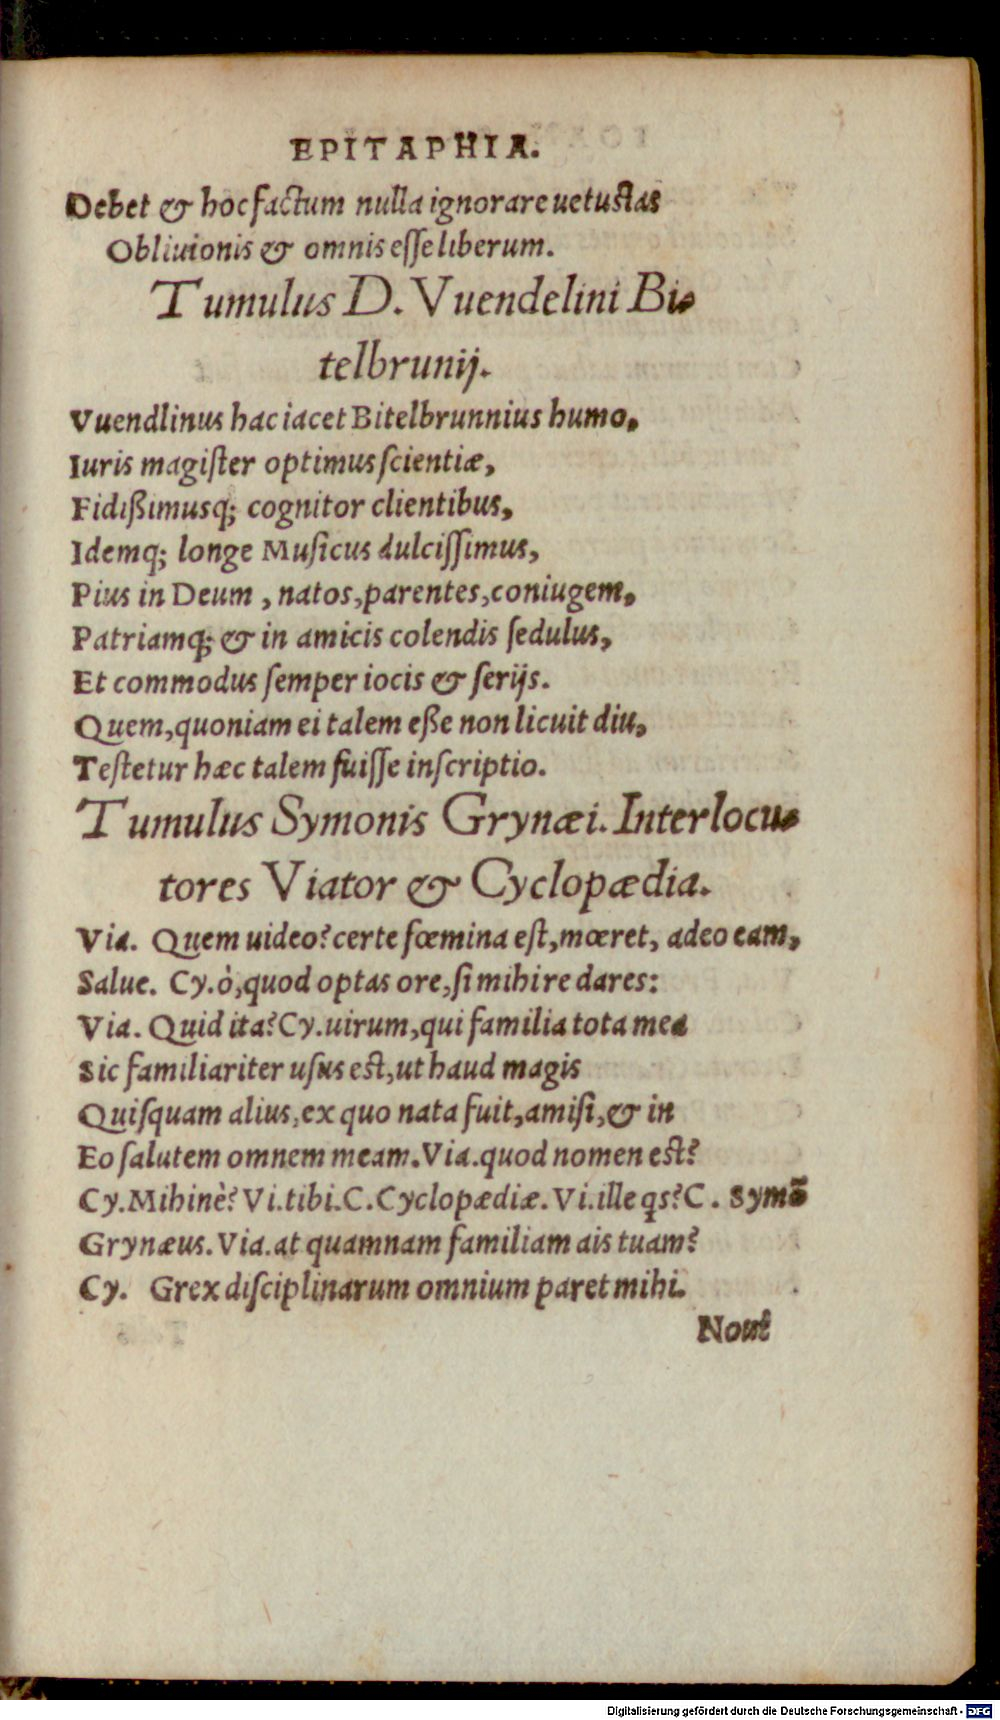 EPITAPHIA.
Debet & hoc factum nulla ignorare uetustas
Obliuionis & omnis esse liberum.
Tumulus D. Vuendelini Bi-
telbrunij.
Vuendlinus hac iacet Bitelbrunnius humo,
Iuris magister optimus scientiæ,
Fidißimusq; cognitor clientibus,
Idemq; longe Musicus dulcissimus,
Pius in Deum, natos, parentes, coniugem,
Patriamq; & in amicis colendis sedulus,
Et commodus semper iocis & serijs.
Quem, quoniam ei talem eße non licuit diu,
Testetur hæc talem fuisse inscriptio.
Tumulus Symonis Grynæi. Interlocu-
tores Viator & Cyclopædia.
Via. Quem uideo? certe fœmina est, mœret, adeo eam,
Salue. Cy. ò, quod optas ore, si mihi re dares:
Via. Quid ita? Cy. uirum, qui familia tota mea
Sic familiariter usus est, ut haud magis
Quisquam alius, ex quo nata fuit, amisi, & in
Eo salutem omnem meam. Via. quod nomen est?
Cy. Mihinè? Vi. tibi. C. Cyclopædiæ. Vi. ille qs? C. Symō
Grynæus. Via. at quamnam familiam ais tuam?
Cy. Grex disciplinarum omnium paret mihi.
Digitalisierung gefördert durch die Deutsche Forschungsgemeinschaft - DFG